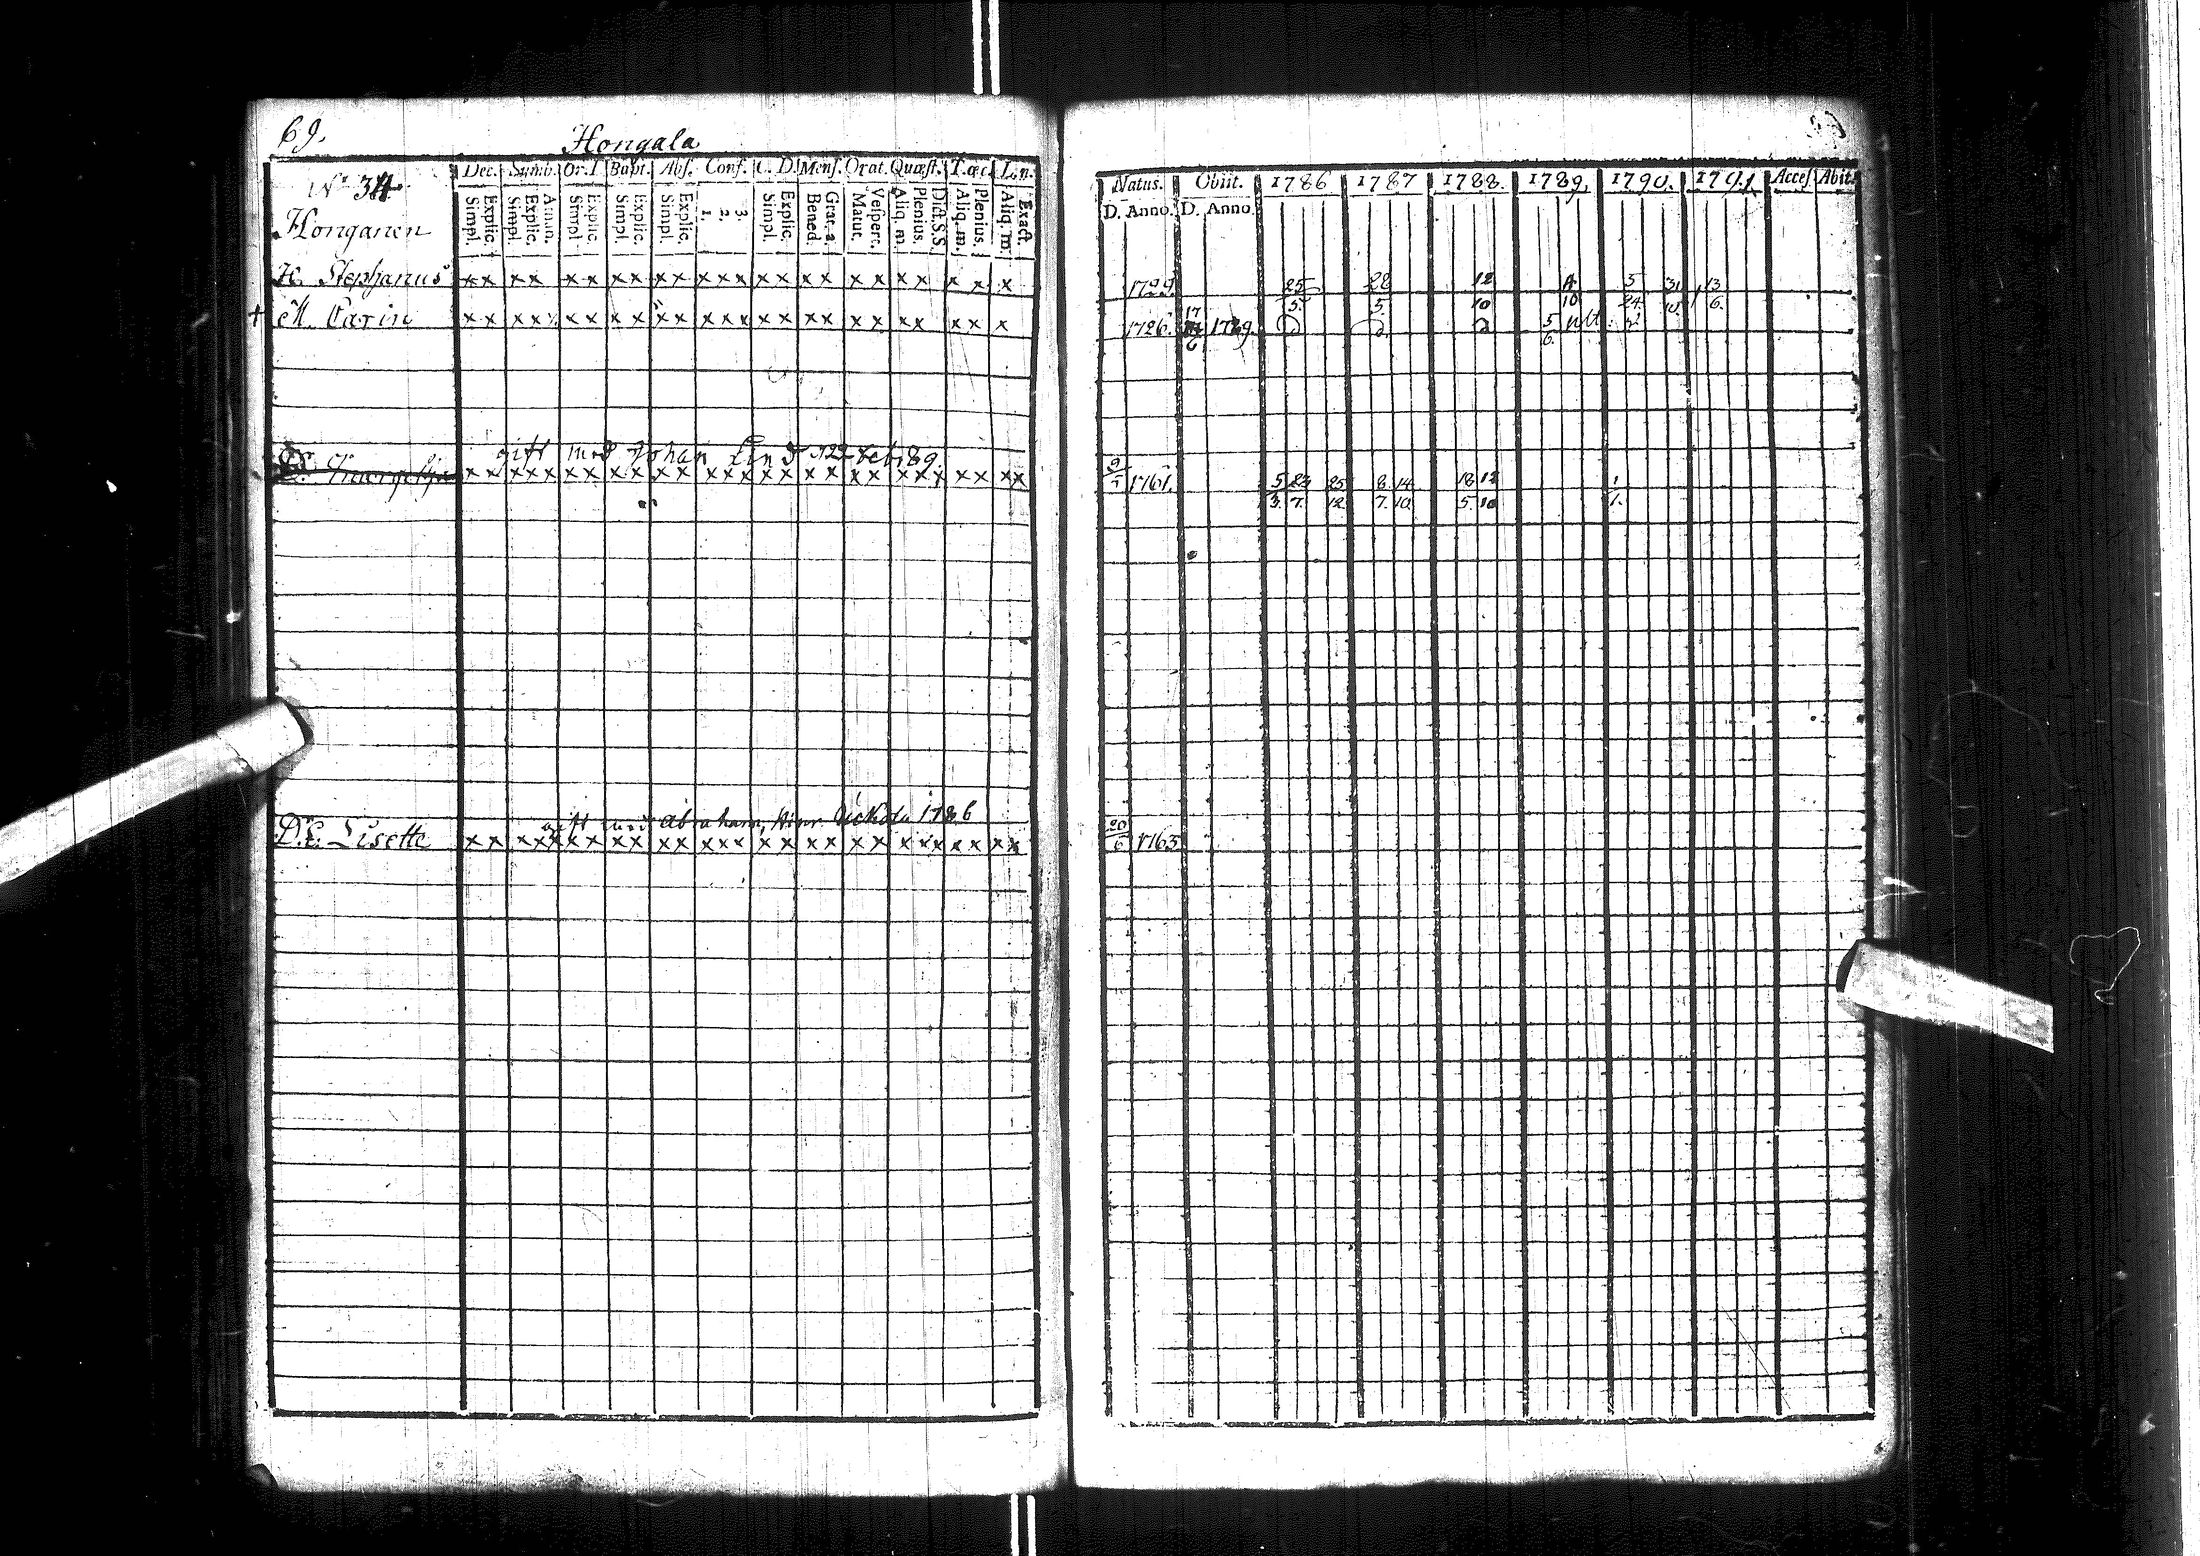 69.
Hongala
No 34
Honganen
Dec. Symb. Or. D Bapt. Abs. Conf. C. D. Mens. Orat. Quæst. Tæc. Lon.
Simpl. Explic. Simpl. Explic. Athan. Simpl. Explic. Simpl. Explic. Simpl. Explic. 1. 2. 3. Simpl. Explic. Bened. Grat. a. Matut. Vespert. Aliq. m. Plenius. Dict. S. S. Aliq. m. Plenius. Aliq. m. Exact.
H. Stephanus x x x x x x x x x x x x x x x x x x x x x x x x
† M. Carin x x x x x x x x x x x x x x x x x x x x x x x x x
gift med Johan Lind 22 Feb. 89.
D. x x x x x x x x x x x x x x x x x x x x x x x x x x x
gift med Abraham, Hinr 1786
D. E. Lisette x x x x x x x x x x x x x x x x x x x x x x x x x x x
Natus. Obiit. 1786 1787 1788. 1789. 1790. 1791 Acces. Abit.
D. Anno. D. Anno.
1729. 25/5. 28/5. 12/10 4/10 5/24 31/10 13/6.
1726. 17/6 1789. 5/6.
9/1 1761. 5/3. 23/7. 25/12. 8/7. 14/10. 18/5. 12/10 1/1.
20/6 1763